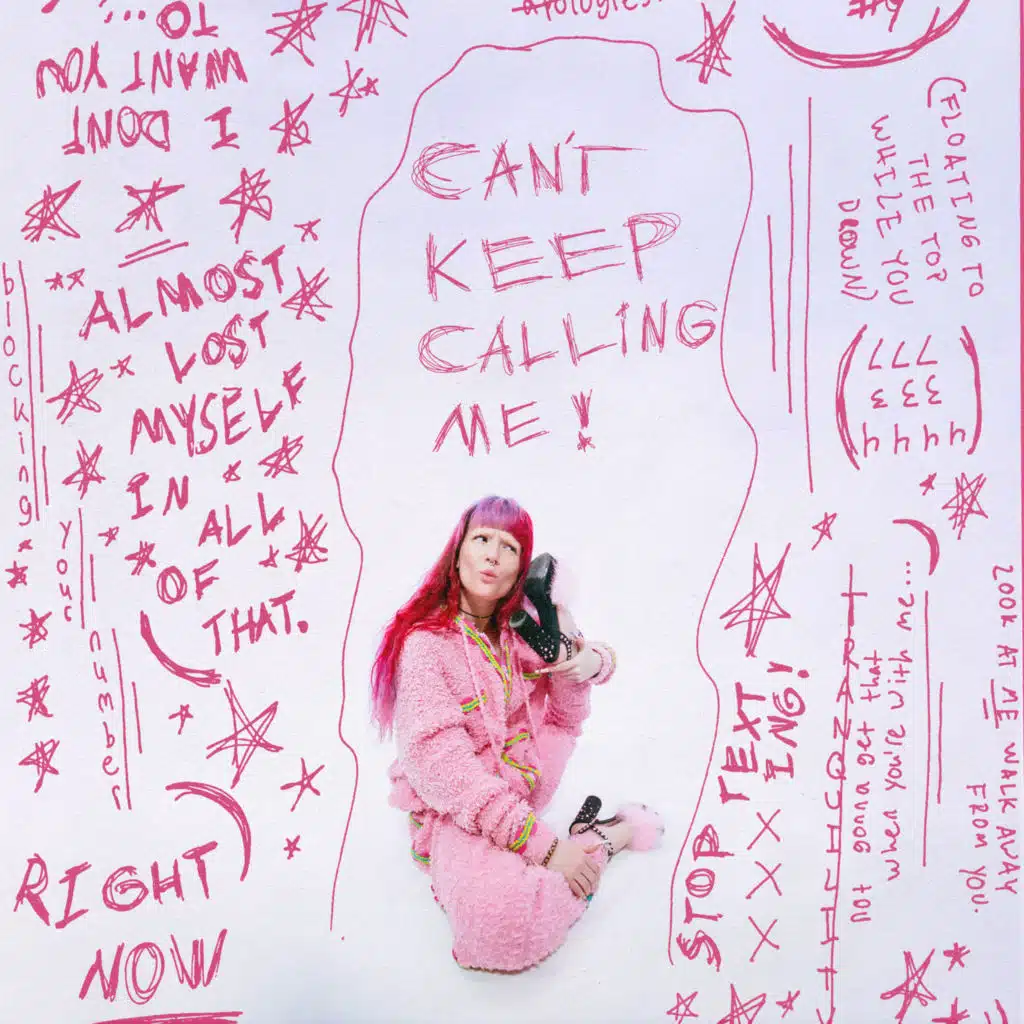 apologies.
I DONT
WANT YOU
TO...
ALMOST
LOST
MYSELF
IN
ALL
OF
THAT.
blocking
your
number
RIGHT
NOW
CAN'T
KEEP
CALLING
ME!
(FLOATING TO
THE TOP
WHILE YOU
DROWN)
STOP TEXT
ING!
XXXX
TRANQUILITY
not gonna get that
when you're with me...
LOOK AT ME WALK AWAY
FROM YOU.